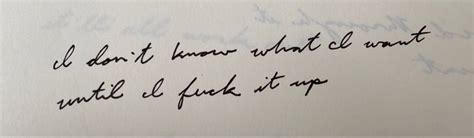 I don't know what I want
until I fuck it up